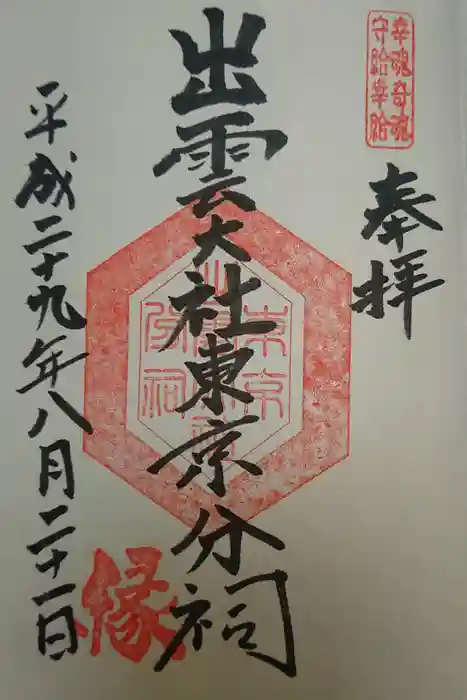 幸魂奇魂
守給幸給
奉拝
出雲大社東京分祠
縁
平成二十九年八月二十一日